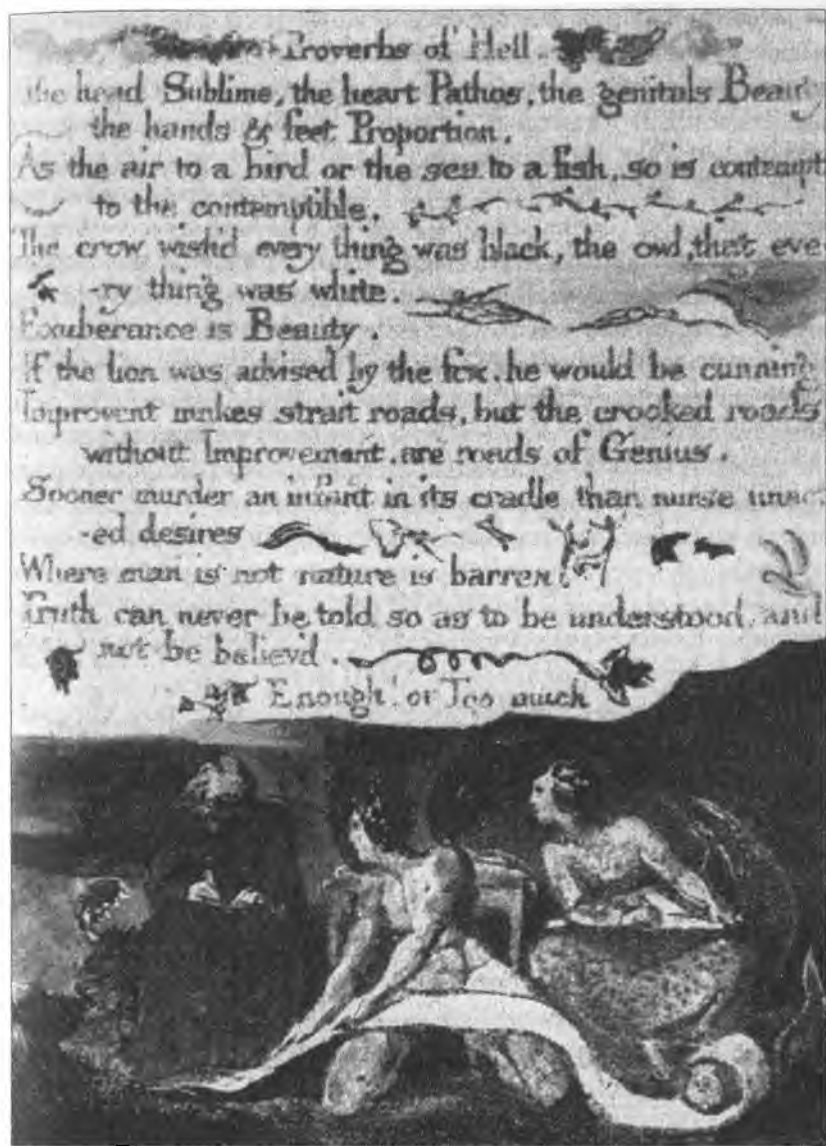 Proverbs of Hell.
The head Sublime, the heart Pathos, the genitals Beauty
the hands & feet Proportion.
As the air to a bird or the sea to a fish, so is contempt
to the contemptible.
The crow wish'd every thing was black, the owl, that eve-
-ry thing was white.
Exuberance is Beauty.
If the lion was advised by the fox. he would be cunning.
Improvent makes strait roads, but the crooked roads
without Improvement, are roads of Genius.
Sooner murder an infant in its cradle than nurse unact-
-ed desires
Where man is not nature is barren.
Truth can never be told so as to be understood, and
not be believ'd.
Enough! or Too much